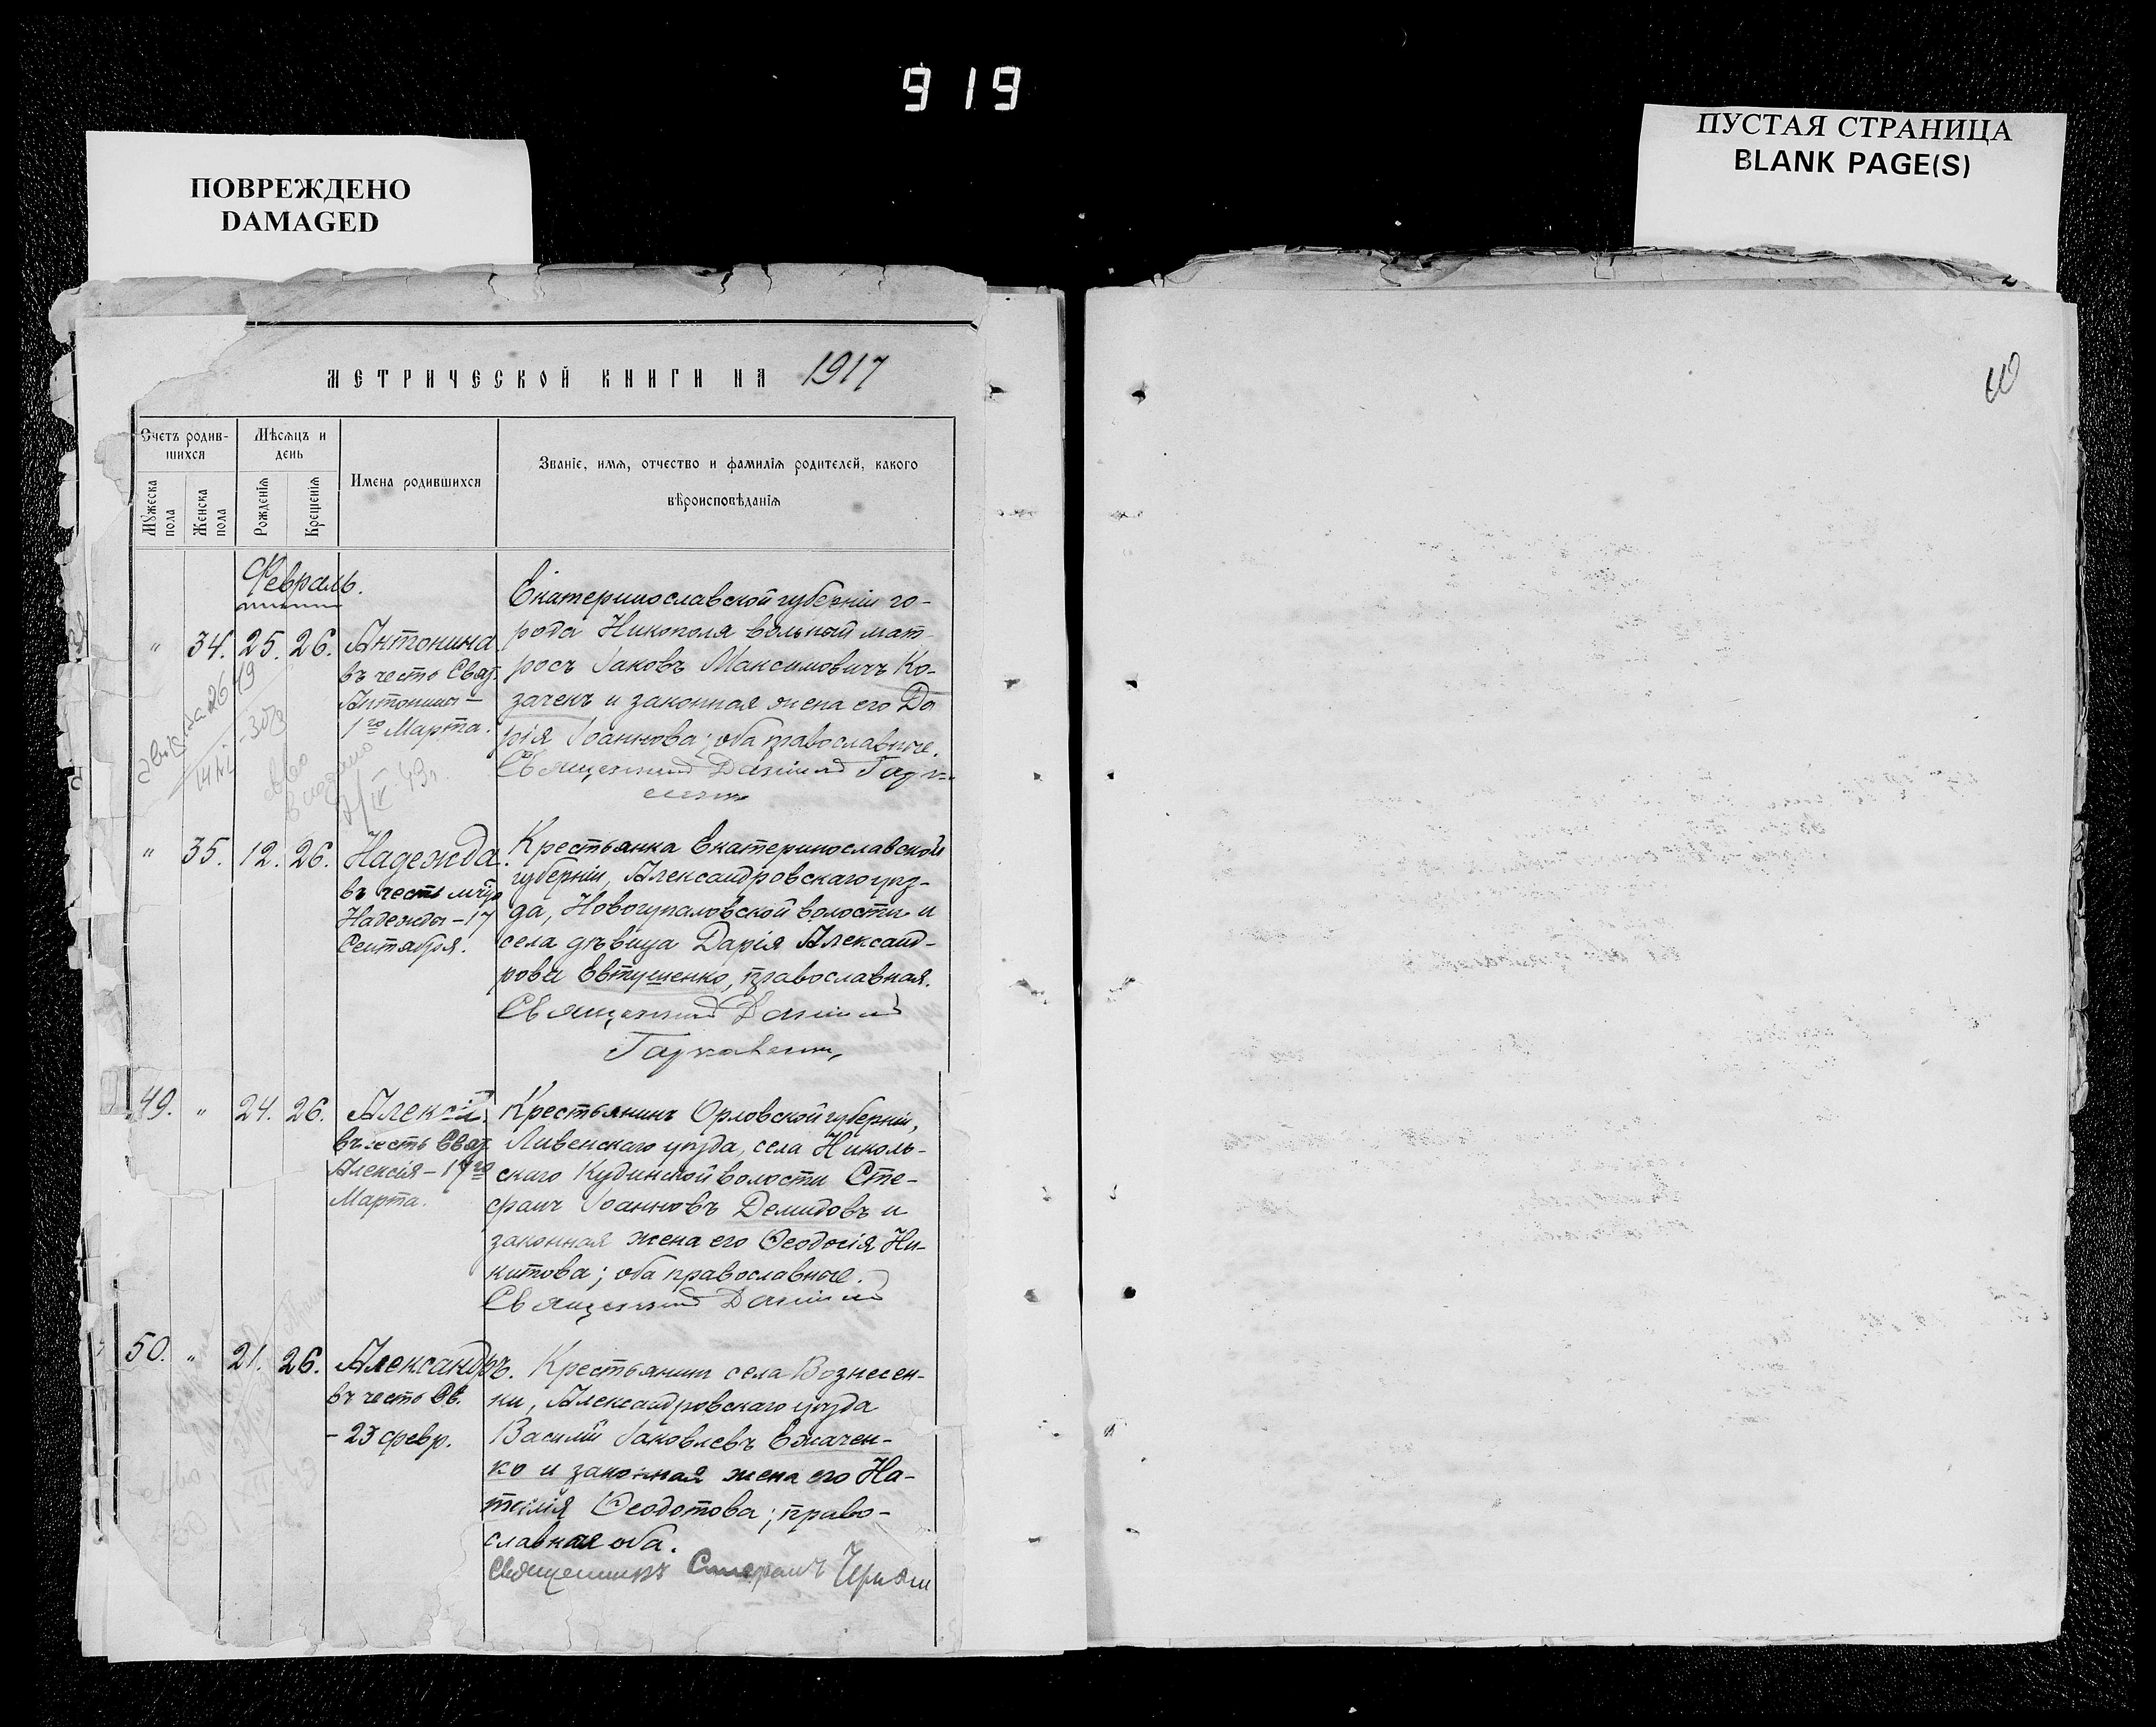 919
ПОВРЕЖДЕНО
DAMAGED
ПУСТАЯ СТРАНИЦА
BLANK PAGE(S)
МЕТРИЧЕСКОЙ КНИГИ НА 1917
Счетъ родив-
шихся
Мѣсяцъ и
день
Имена родившихся
Званіе, имя, отчество и фамилія родителей, какого
вѣроисповѣданія
Мужеска
пола
Женска
пола
Рожденія
Крещенія
Февраль.
" 34. 25. 26. Антонина
въ честь Свят.
Антонины –
1го Марта.
Екатеринославской губерніи го-
рода Никополя вольный мат-
росъ Іаковъ Максимовичъ Ко-
заченъ и законная жена его Да
рія Іоаннова; оба православные.
Священникъ Даніилъ
" 35. 12. 26. Надежда.
въ честь мчц
Надежды – 17
Сентября.
Крестьянка Екатеринославской
губерніи, Александровскаго уѣз-
да, Новогупаловской волости и
села дѣвица Дарія Александ-
рова Евтушенко, православная.
Священникъ Даніилъ
49. " 24. 26. Алексій.
въ честь Свят.
Алексія – 17го
Марта.
Крестьянинъ Орловской губерніи,
Ливенскаго уѣзда, села Николь-
скаго Кудинской волости Сте-
фанъ Іоанновъ Демидовъ и
законная жена его Ѳеодосія Ни-
китова; оба православные.
Священникъ Даніилъ
50. " 21. 26. Александръ.
въ честь Св.
– 23 февр.
Крестьянинъ села Вознесен-
ки, Александровскаго уѣзда
Василій Іаковлевъ
ко и законная жена его На-
талія Ѳеодотова; право-
славная оба.
Священникъ Стефанъ
40